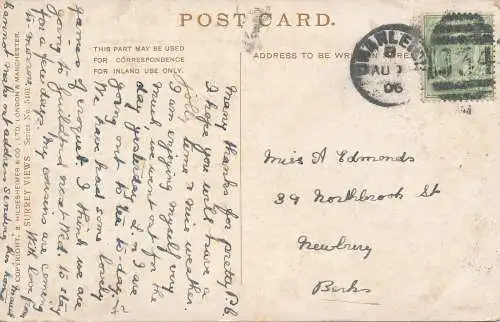 POST CARD.
THIS PART MAY BE USED
FOR CORRESPONDENCE
FOR INLAND USE ONLY.
ADDRESS TO BE WR
COPYRIGHT, S. HILDESHEIMER & CO. LTD. LONDON & MANCHESTER.
SURREY VIEWS.
Many thanks for pretty P.C.
I hope you will have a
jolly time & nice weather.
I am enjoying myself very
much, we went out for the
day yesterday & I are
going out to tea to-day.
We have had some lovely
games of croquet. I think we are
going to Guildford next Wed. to stay
for a few days. My cousins are coming
to-morrow
With love from
cannot make out address sending
AU
06
Miss A Edmonds
39 Northbrook St
Newbury
Berks